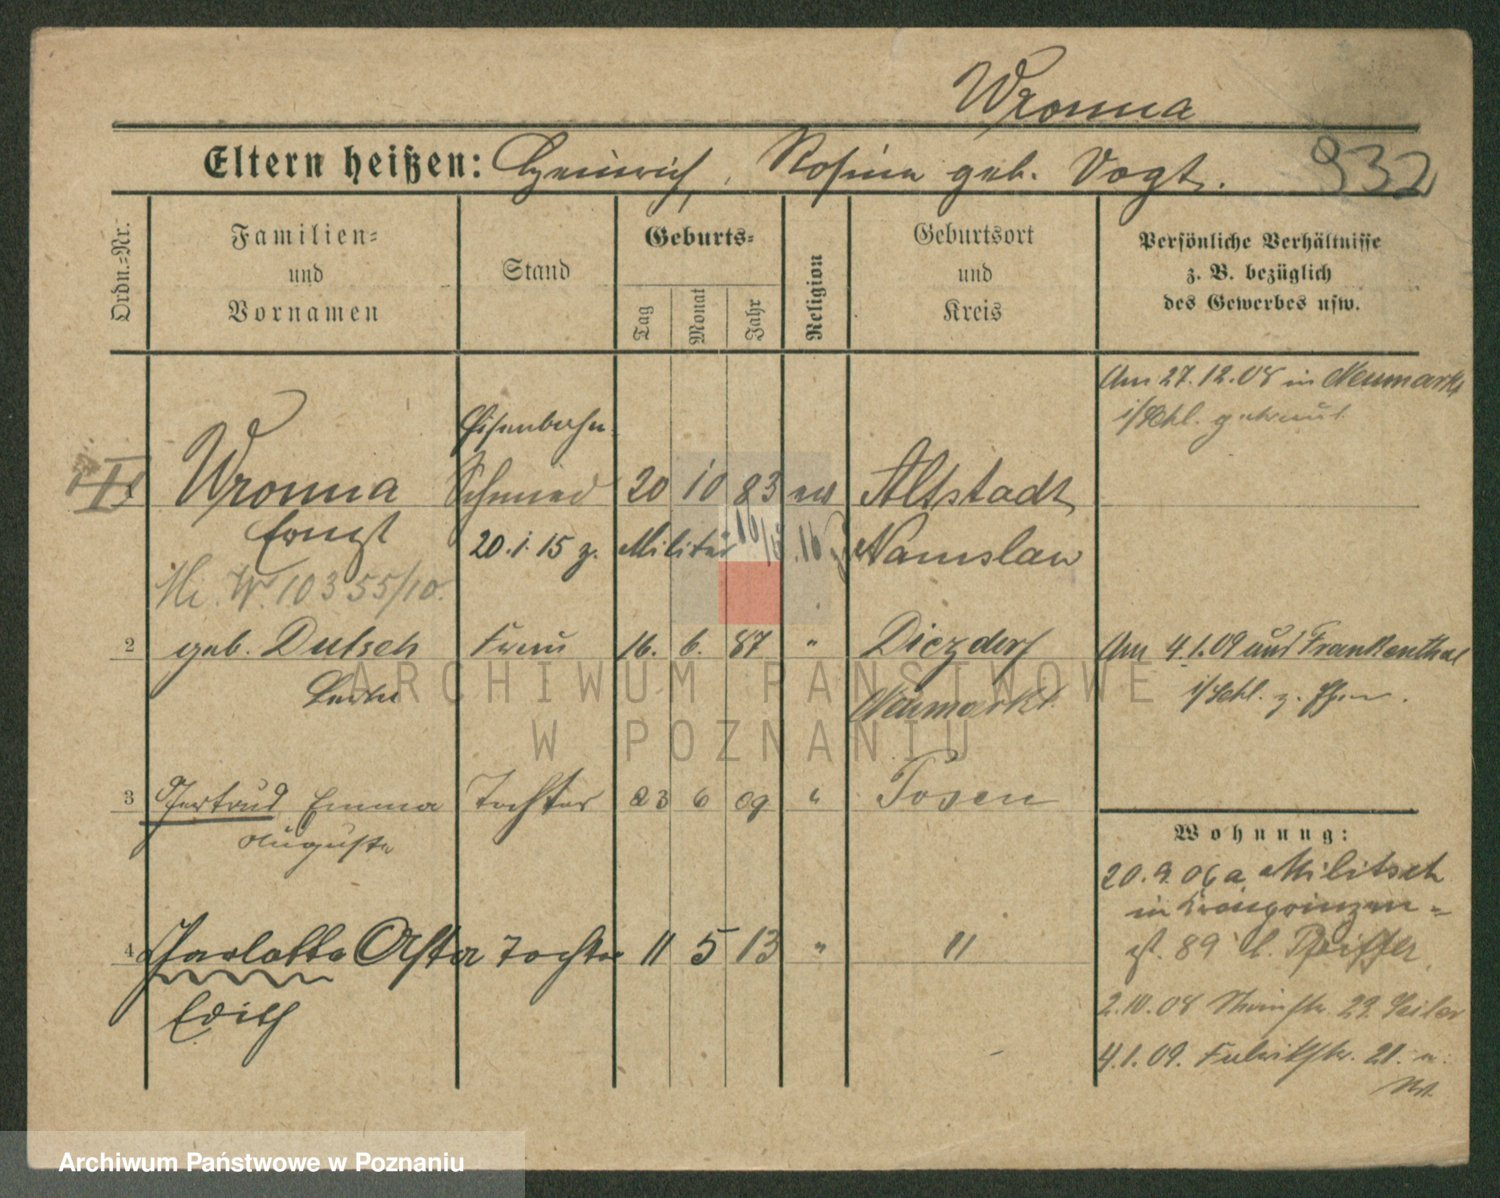 Wronna
Eltern heißen: Heinrich, Rosina geb. Vogt.
932
Ordn.-Nr.
Familien-
und
Vornamen
Stand
Geburts-
Tag
Monat
Jahr
Religion
Geburtsort
und
Kreis
Persönliche Verhältnisse
z. B. bezüglich
des Gewerbes usw.
Am 27.12.08 in Neumarkt
i/Schl. getraut
Eisenbahn-
Wronna Schmied 20 10 83 Altstadt
Ernst 20.1.15 z. Militär Namslau
W. 10355/10.
2 geb. Dutsch Frau 16. 6. 87 " Diezdorf
Neumarkt
Am 4.1.09 aus Frankenthal
i/Schl. z.
3 Gertrud Emma Tochter 23 6 09 " Posen
Auguste
Wohnung:
20.9.06 a Militsch
in Kronprinzen-
st. 89 b. Pfeiffer
4 Charlotte Tochter 11 5 13 " "
Edith
2.10.08 29
4.1.09. 21.
ARCHIWUM PAŃSTWOWE
W POZNANIU
Archiwum Państwowe w Poznaniu